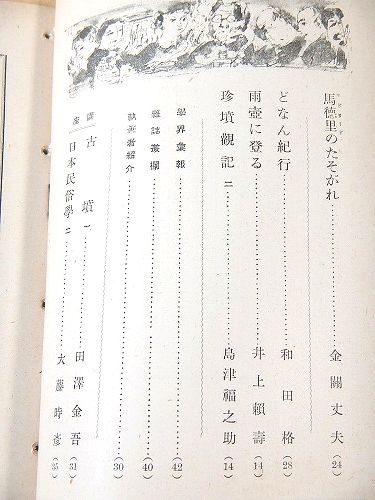 馬德里のたそがれ……金關丈夫(24)
マドリード
どなん紀行……和田格(28)
雨壺に登る……井上賴壽(14)
珍墳觀記 二……島津福之助(14)
學界彙報……(42)
雜誌叢欄……(40)
執筆者紹介……(30)
講座 古墳 一……田澤金吾(31)
日本民俗學 二……大藤時彥(35)